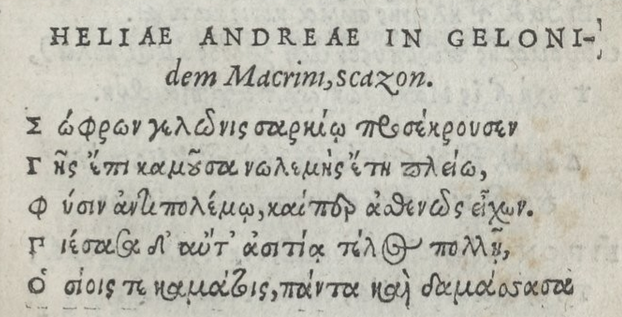 HELIAE ANDREAE IN GELONI-
dem Macrini, scazon.
Σώφρων γελωνὶς σαρκίῳ προσέκρουσεν
Γῆς ἔπι καμοῦσα νωλεμὴς ἔτη πλείω,
Φύσιν ἀντιπολέμῳ, ἀσθενῶς
Πιέσασα δ' αὖτ' ἀσιτίᾳ τέλος πολλῇ,
Ὁσίοις τε καμάτοις, πάντα καὶ